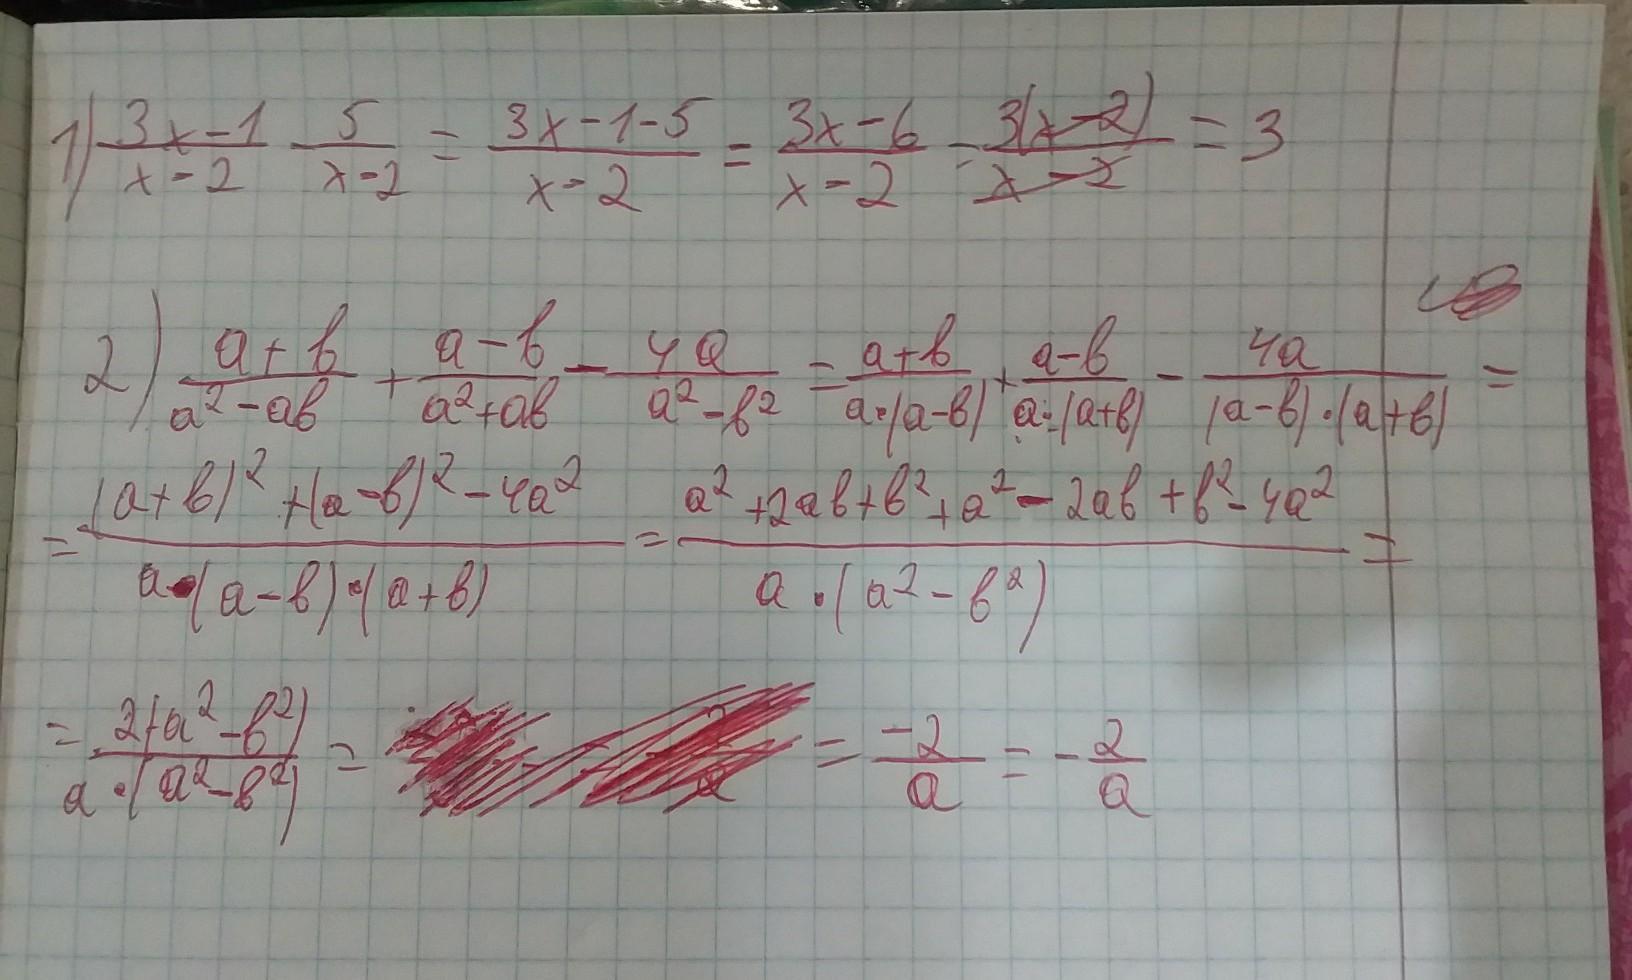 1) (3x-1)/(x-2) - 5/(x-2) = (3x-1-5)/(x-2) = (3x-6)/(x-2) = 3(x-2)/(x-2) = 3
2) (a+b)/(a²-ab) + (a-b)/(a²+ab) - 4a/(a²-b²) = (a+b)/(a·(a-b)) + (a-b)/(a·(a+b)) - 4a/((a-b)·(a+b)) =
= ((a+b)²+(a-b)²-4a²)/(a·(a-b)·(a+b)) = (a²+2ab+b²+a²-2ab+b²-4a²)/(a·(a²-b²)) =
= 2(a²-b²)/(a·(a²-b²)) = = -2/a = -2/a